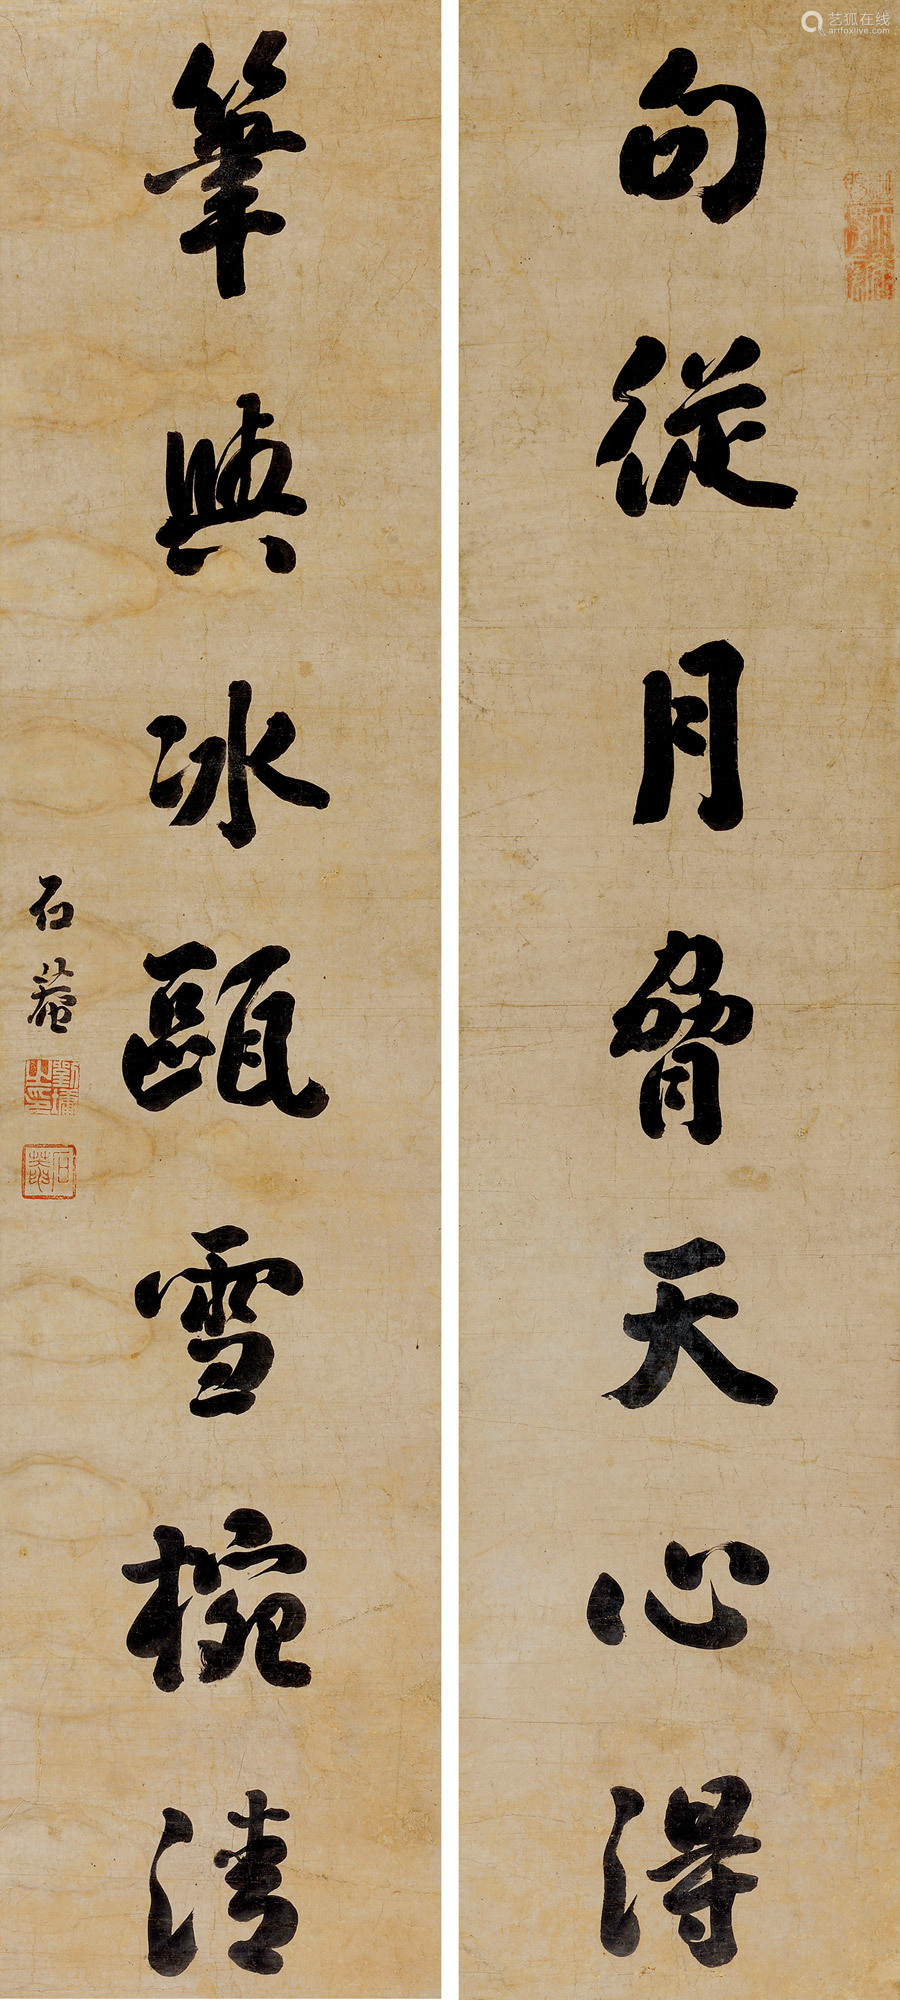 句從月脅天心得
筆與冰甌雪椀清
石菴
劉墉之印
石菴
艺狐在线
artfoxlive.com